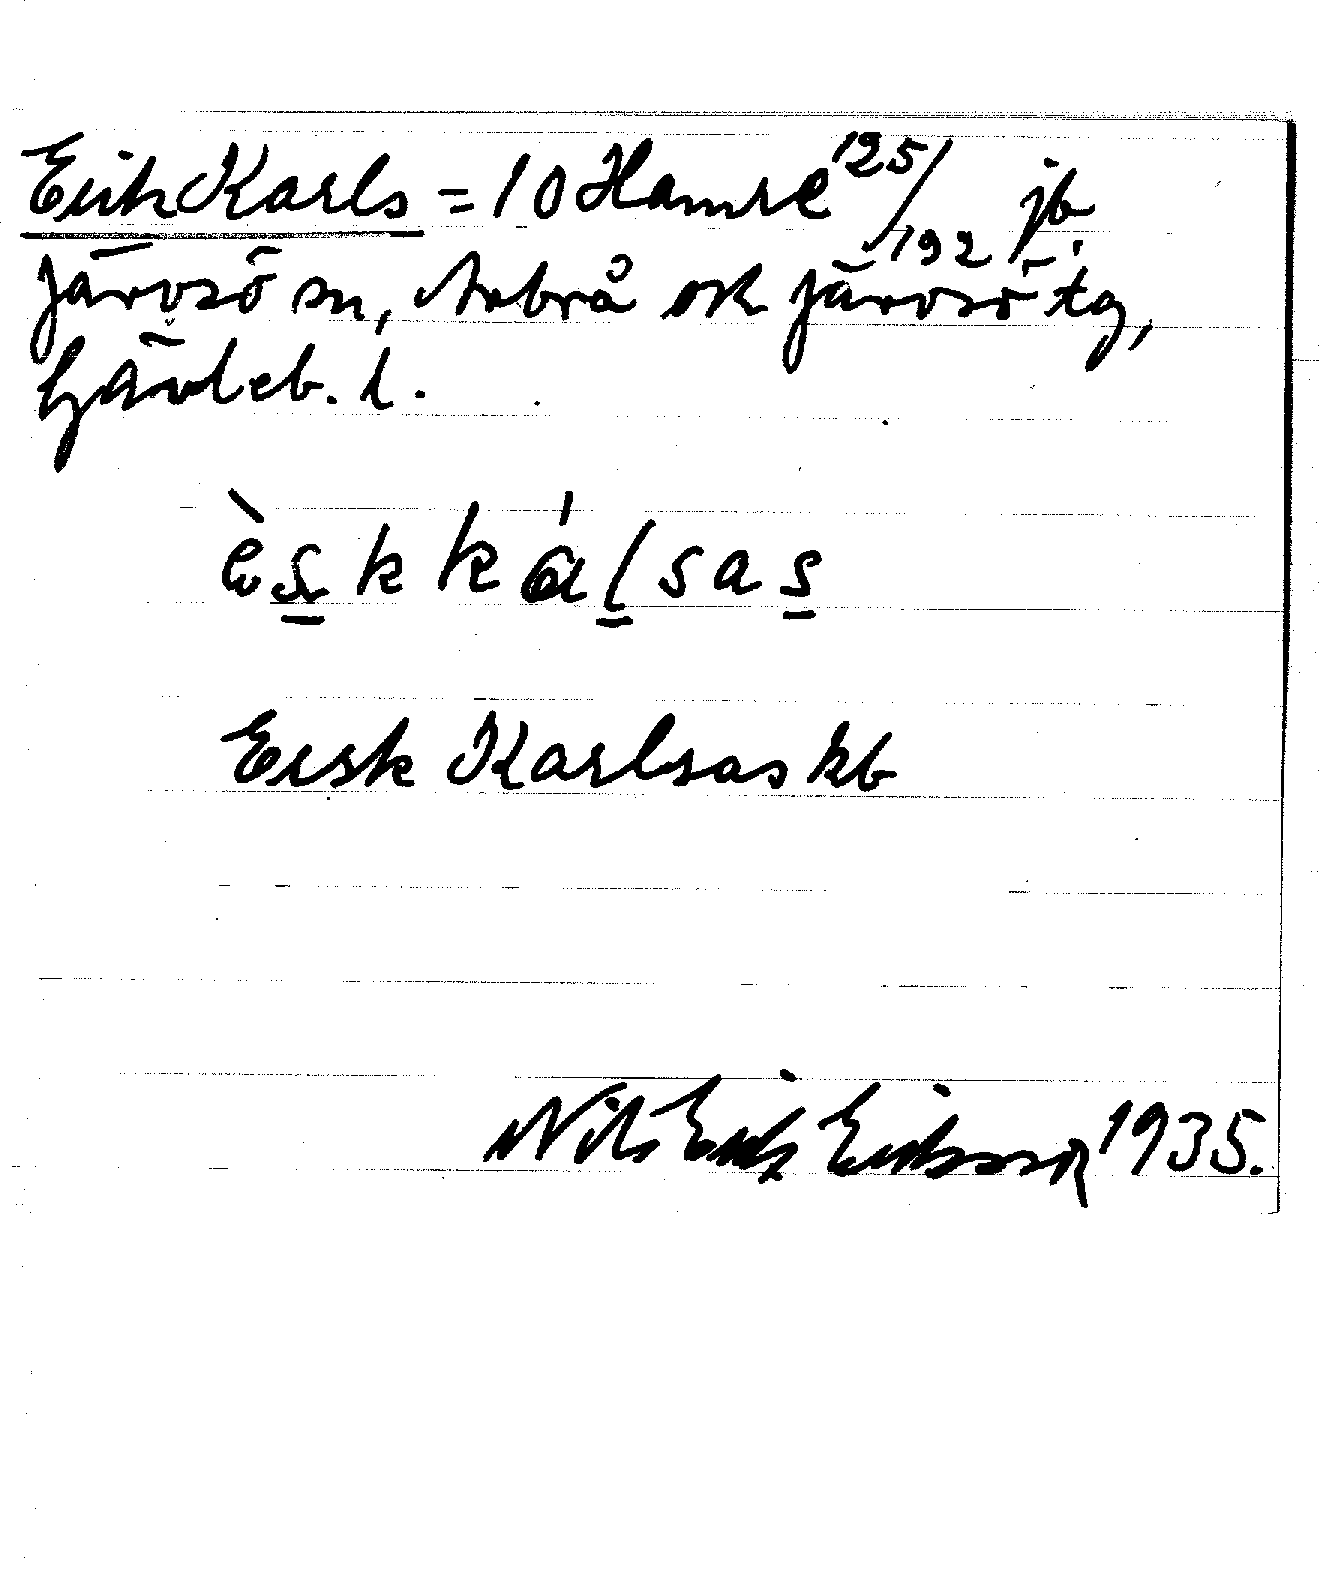 Erik Karls = 10 Hamre 125/192 jb.
Järvsö sn, Arbrå ok Järvsö tg,
Gävleb. l.
èskkálsas
Ersk Karlsas kb
Nils Erik Eriksson 1935.